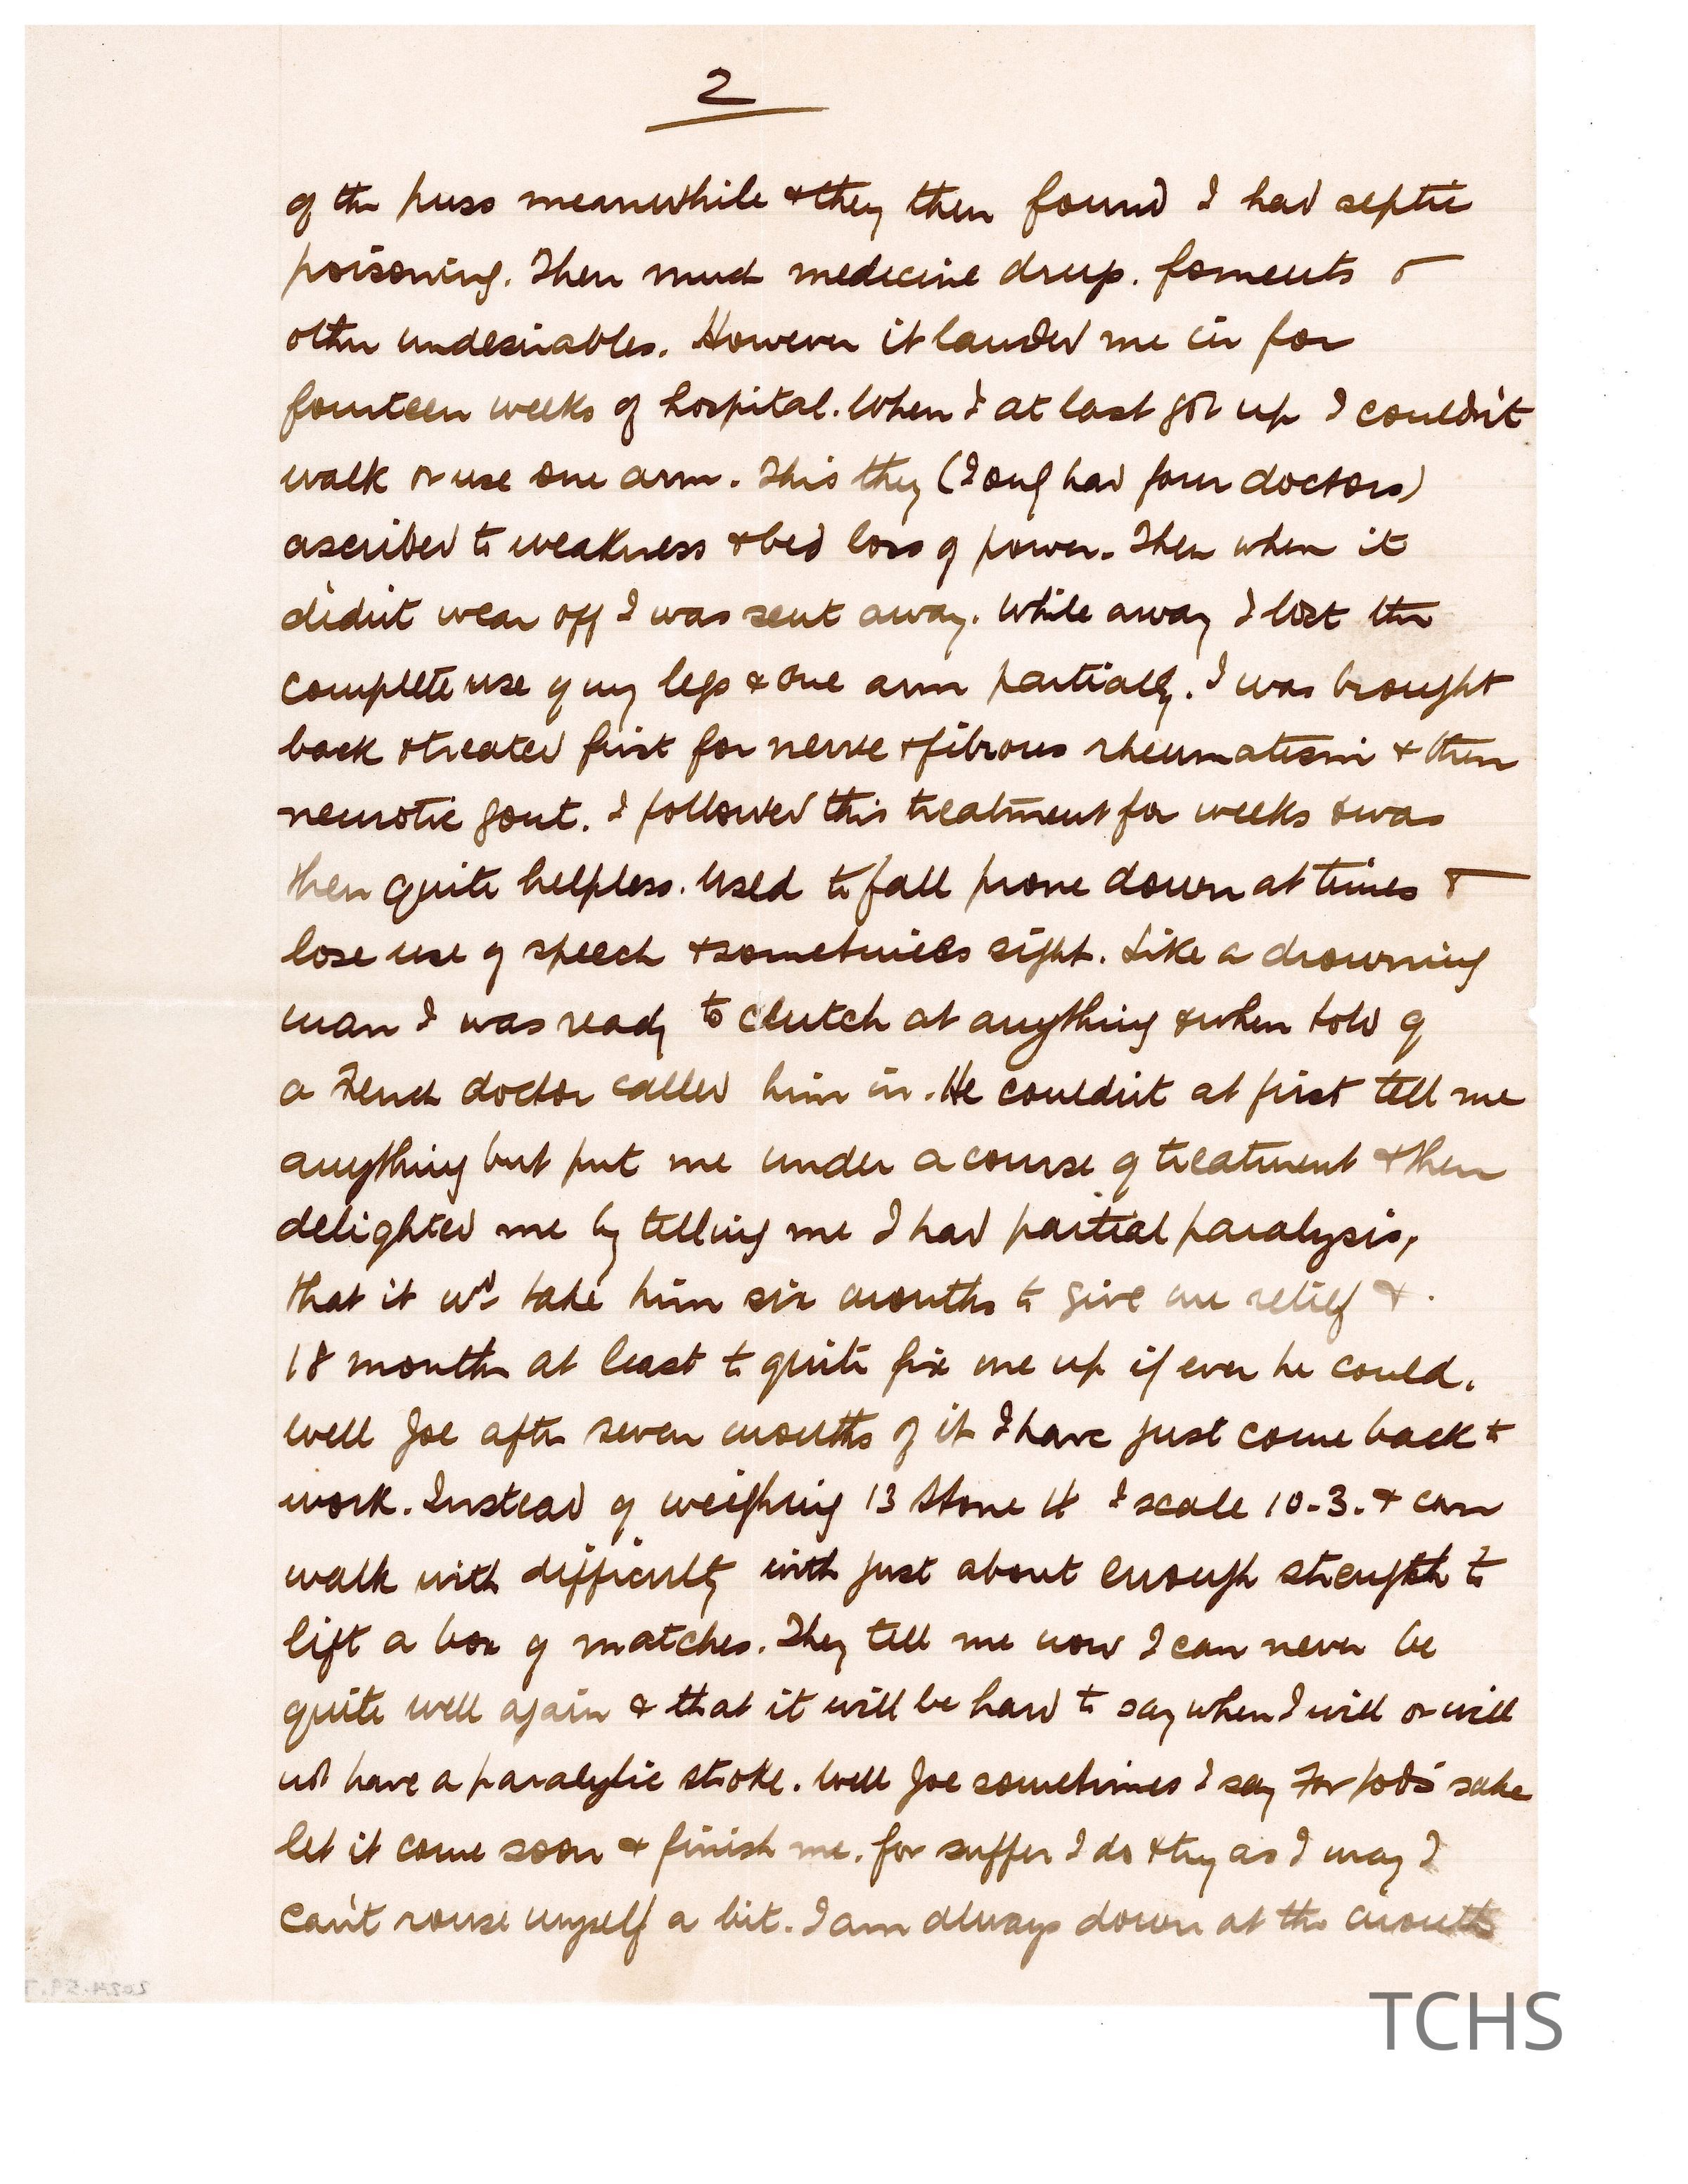 2
of the puss meanwhile & they then found I had septic
poisoning. Then much medicine drugs. foments &
other undesirables. However it landed me in for
fourteen weeks of hospital. When I at last got up I couldn't
walk or use one arm. This they (I only had four doctors)
ascribed to weakness & bed loss of power. Then when it
didn't wear off I was sent away. While away I lost the
complete use of my legs & one arm partially. I was brought
back & treated first for nerve & fibrous rheumatism & then
neurotic gout. I followed this treatment for weeks & was
then quite helpless. Used to fall prone down at times &
lose use of speech & sometimes sight. Like a drowning
man I was ready to clutch at anything & when told of
a French doctor called him in. He couldn't at first tell me
anything but put me under a course of treatment & then
delighted me by telling me I had partial paralysis,
that it wd take him six months to give me relief &
18 months at least to quite fix me up if ever he could.
Well Joe after seven months of it I have just come back to
work. Instead of weighing 13 Stone 4 I scale 10-3. & can
walk with difficulty with just about enough strength to
lift a box of matches. They tell me now I can never be
quite well again & that it will be hard to say when I will or will
not have a paralytic stroke. Well Joe sometimes I say For God's sake
let it come soon & finish me. for suffer I do & try as I may I
can't rouse myself a bit. I am always down at the mouth
TCHS